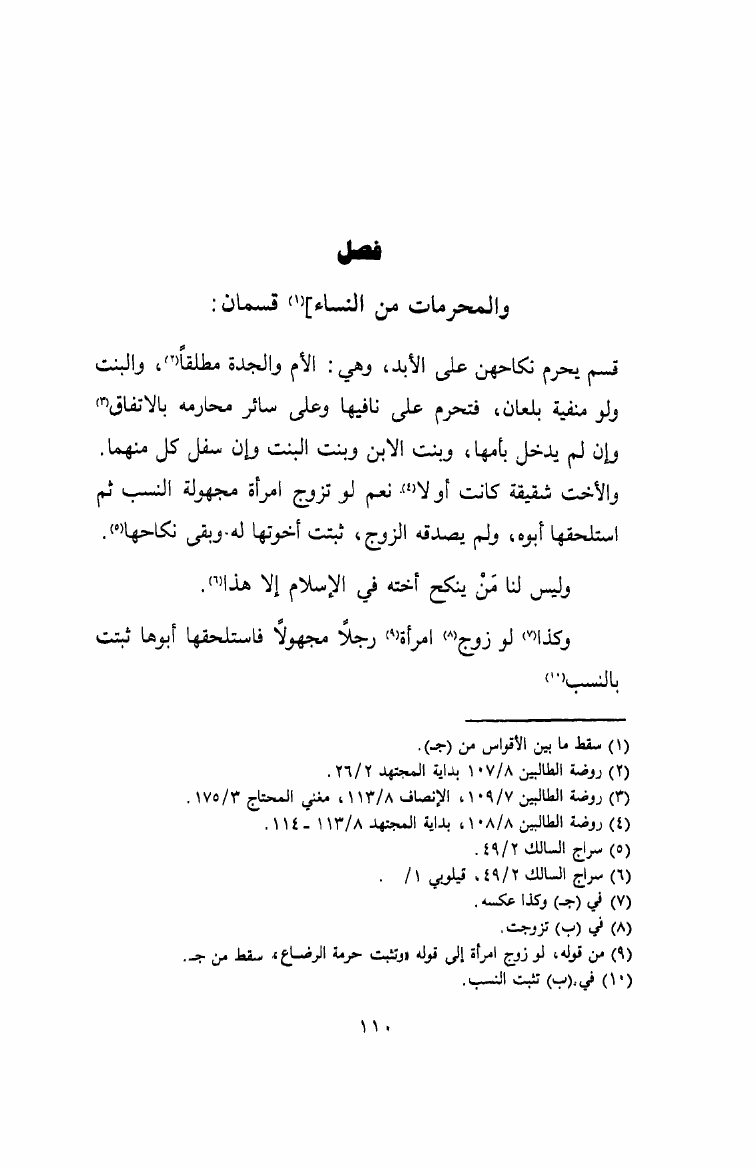 فصل
والمحرمات من النساء]<sup>(١)</sup> قسمان :
قسم يحرم نكاحهن على الأبد، وهي : الأم والجدة مطلقاً<sup>(٢)</sup>، والبنت
ولو منفية بلعان، فتحرم على نافيها وعلى سائر محارمه بالاتفاق<sup>(٣)</sup>
وإن لم يدخل بأمها، وبنت الابن وبنت البنت وإن سفل كل منهما.
والأخت شقيقة كانت أو لا<sup>(٤)</sup>. نعم لو تزوج امرأة مجهولة النسب ثم
استلحقها أبوه، ولم يصدقه الزوج، ثبتت أخوتها له وبقى نكاحها<sup>(٥)</sup>.
وليس لنا مَنْ ينكح أخته في الإسلام إلا هذا<sup>(٦)</sup>.
وكذا<sup>(٧)</sup> لو زوج<sup>(٨)</sup> امرأة<sup>(٩)</sup> رجلاً مجهولاً فاستلحقها أبوها ثبتت
بالنسب<sup>(١٠)</sup>
(١) سقط ما بين الأقواس من (جـ).
(٢) روضة الطالبين ١٠٧/٨ بداية المجتهد ٢٦/٢.
(٣) روضة الطالبين ١٠٩/٧، الإنصاف ١١٣/٨، مغني المحتاج ١٧٥/٣.
(٤) روضة الطالبين ١٠٨/٨، بداية المجتهد ١١٣/٨ ـ ١١٤.
(٥) سراج السالك ٤٩/٢.
(٦) سراج السالك ٤٩/٢، قيلوبي ١/ .
(٧) في (جـ) وكذا عكسه.
(٨) في (ب) تزوجت.
(٩) من قوله، لو زوج امرأة إلى قوله «وتثبت حرمة الرضاع» سقط من جـ.
(١٠) في (ب) تثبت النسب.
١١٠